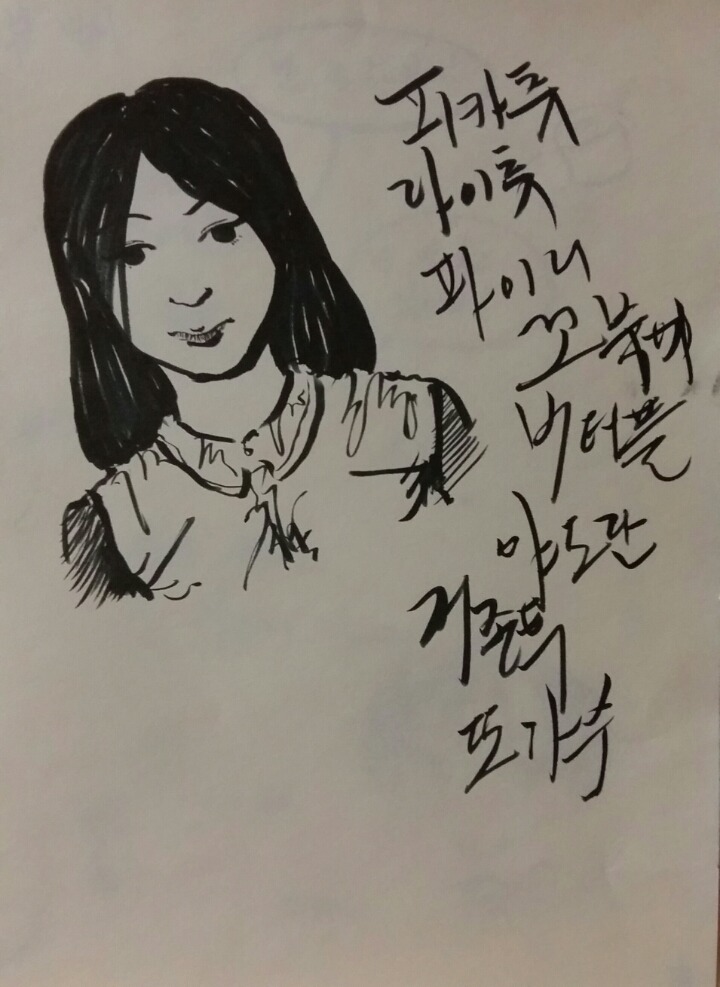 피카츄
라이츄
파이리
꼬부기
버터플
야도란
피죤투
또가스